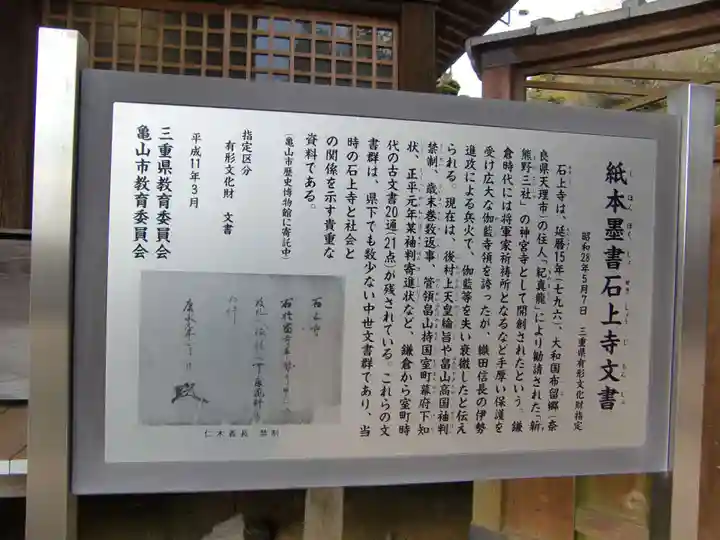 紙本墨書石上寺文書
昭和28年5月7日 三重県有形文化財指定
石上寺は、延暦15年（七九六）、大和国布留郷（奈
良県天理市）の住人「紀真龍」により勧請された「新
熊野三社」の神宮寺として開創されたという。鎌
倉時代には将軍家祈祷所となるなど手厚い保護を
受け広大な伽藍寺領を誇ったが、織田信長の伊勢
進攻による兵火で、伽藍等を失い衰微したと伝え
られる。現在は、後村上天皇綸旨や畠山高国袖判
禁制、歳末巻数返事、管領畠山持国室町幕府下知
状、正平元年某袖判寄進状など、鎌倉から室町時
代の古文書20通（21点）が残されている。これらの文
書群は、県下でも数少ない中世文書群であり、当
時の石上寺と社会と
の関係を示す貴重な
資料である。
（亀山市歴史博物館に寄託中）
指定区分
有形文化財 文書
平成11年3月
三重県教育委員会
亀山市教育委員会
仁木義長 禁制